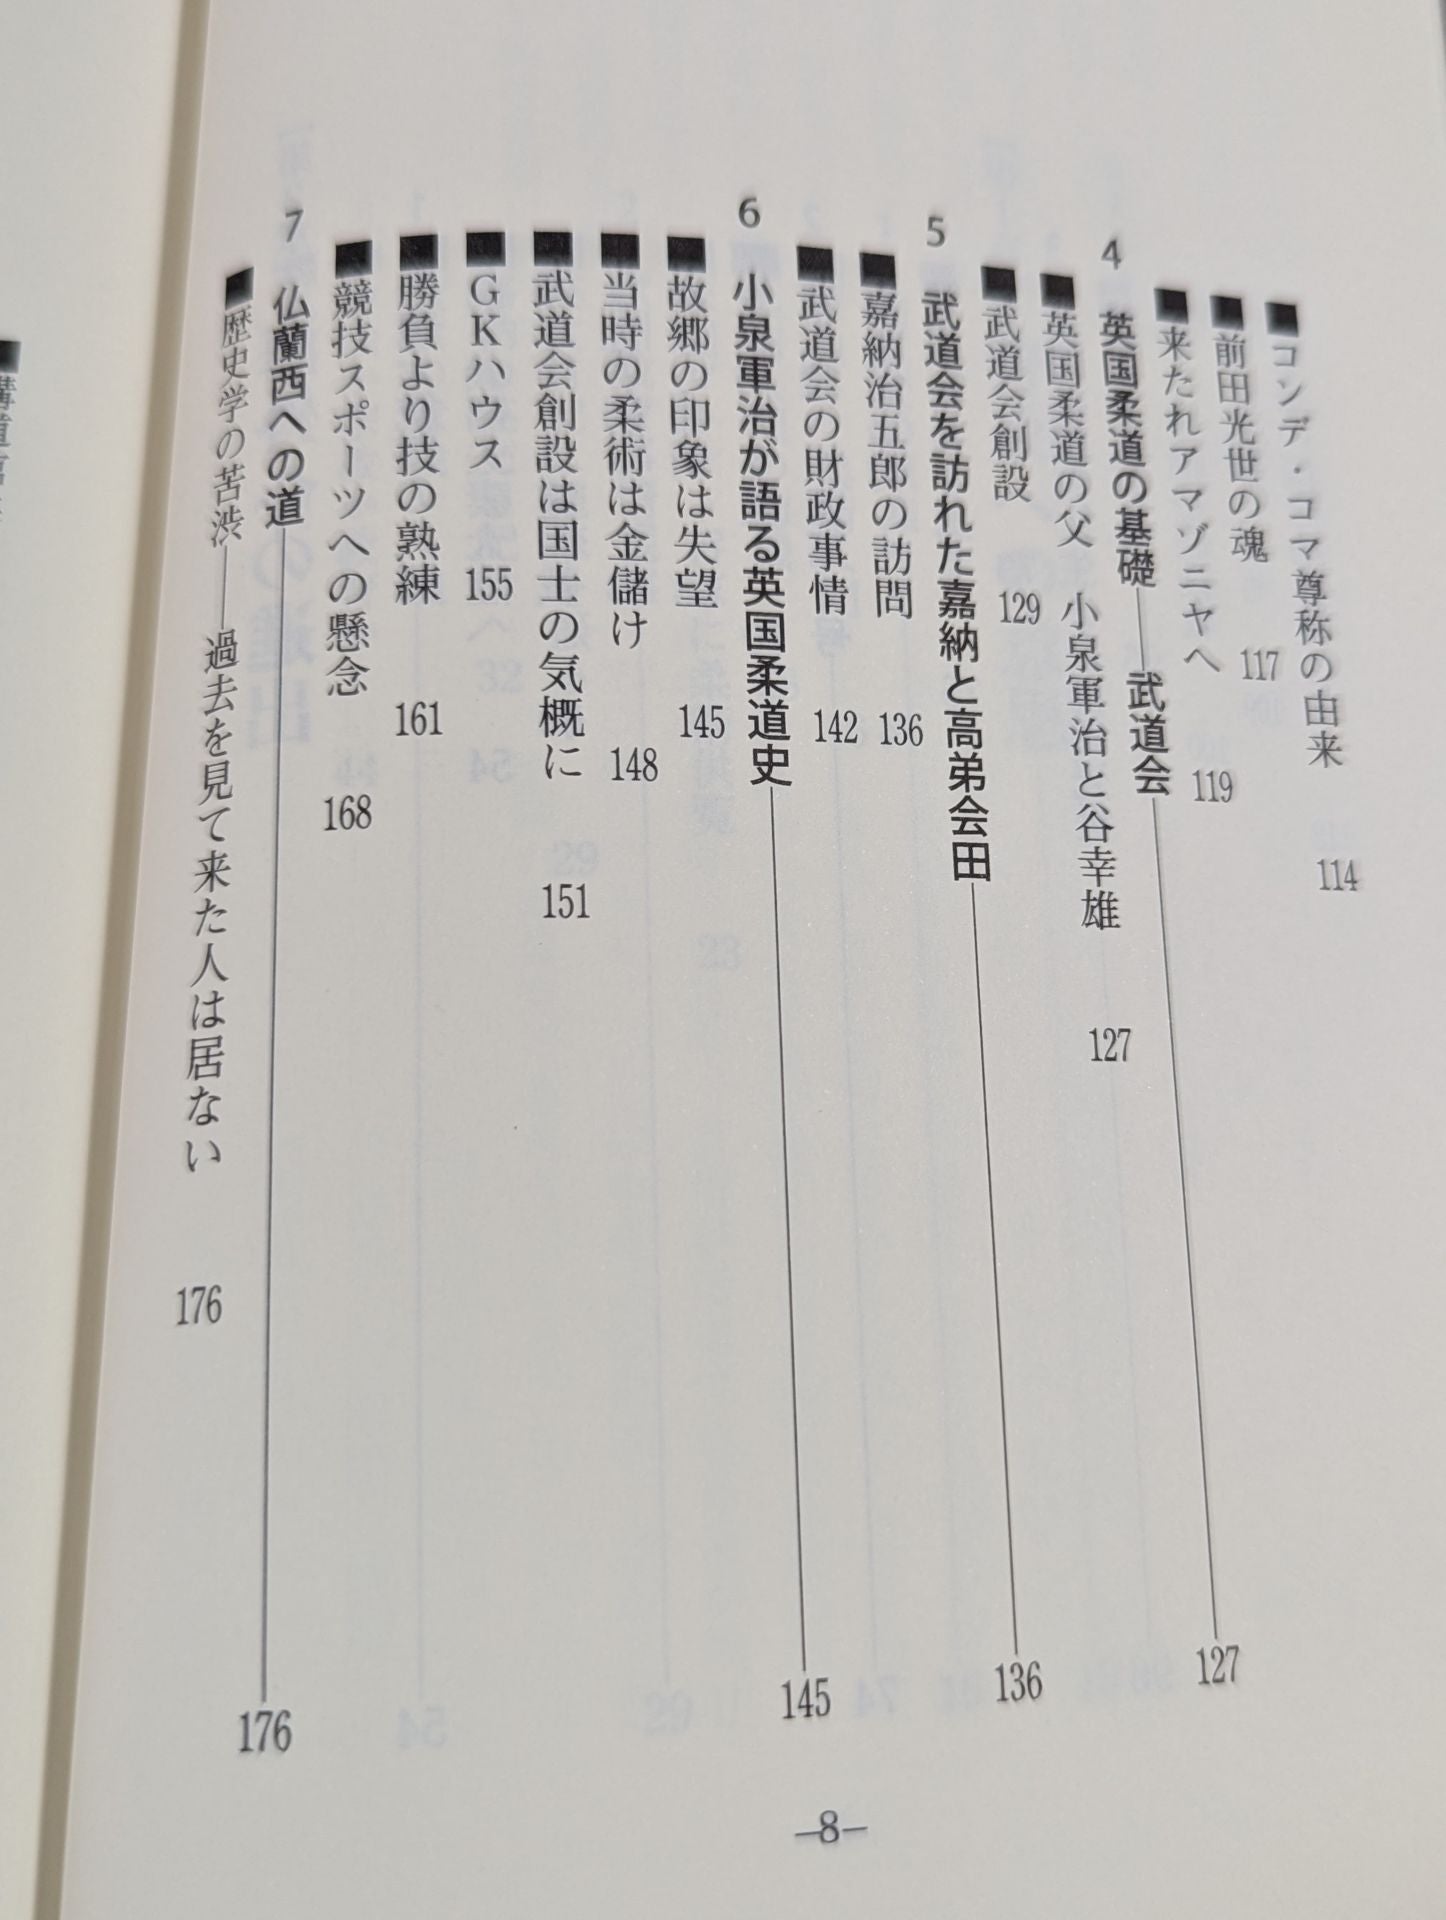 ■コンデ・コマ尊称の由来 114
■前田光世の魂 117
■来たれアマゾニヤへ 119
4 英国柔道の基礎――武道会 127
■英国柔道の父 小泉軍治と谷幸雄 127
■武道会創設 129
5 武道会を訪れた嘉納と高弟会田 136
■嘉納治五郎の訪問 136
■武道会の財政事情 142
6 小泉軍治が語る英国柔道史 145
■故郷の印象は失望 145
■当時の柔術は金儲け 148
■武道会創設は国士の気概に 151
■GKハウス 155
■勝負より技の熟練 161
■競技スポーツへの懸念 168
7 仏蘭西への道 176
■歴史学の苦渋――過去を見て来た人は居ない 176
―8―